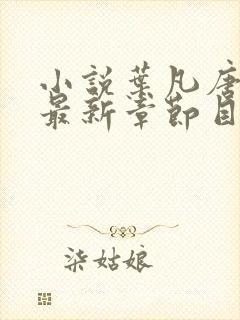 小説葉凡唐
最新章節目
柒姑娘